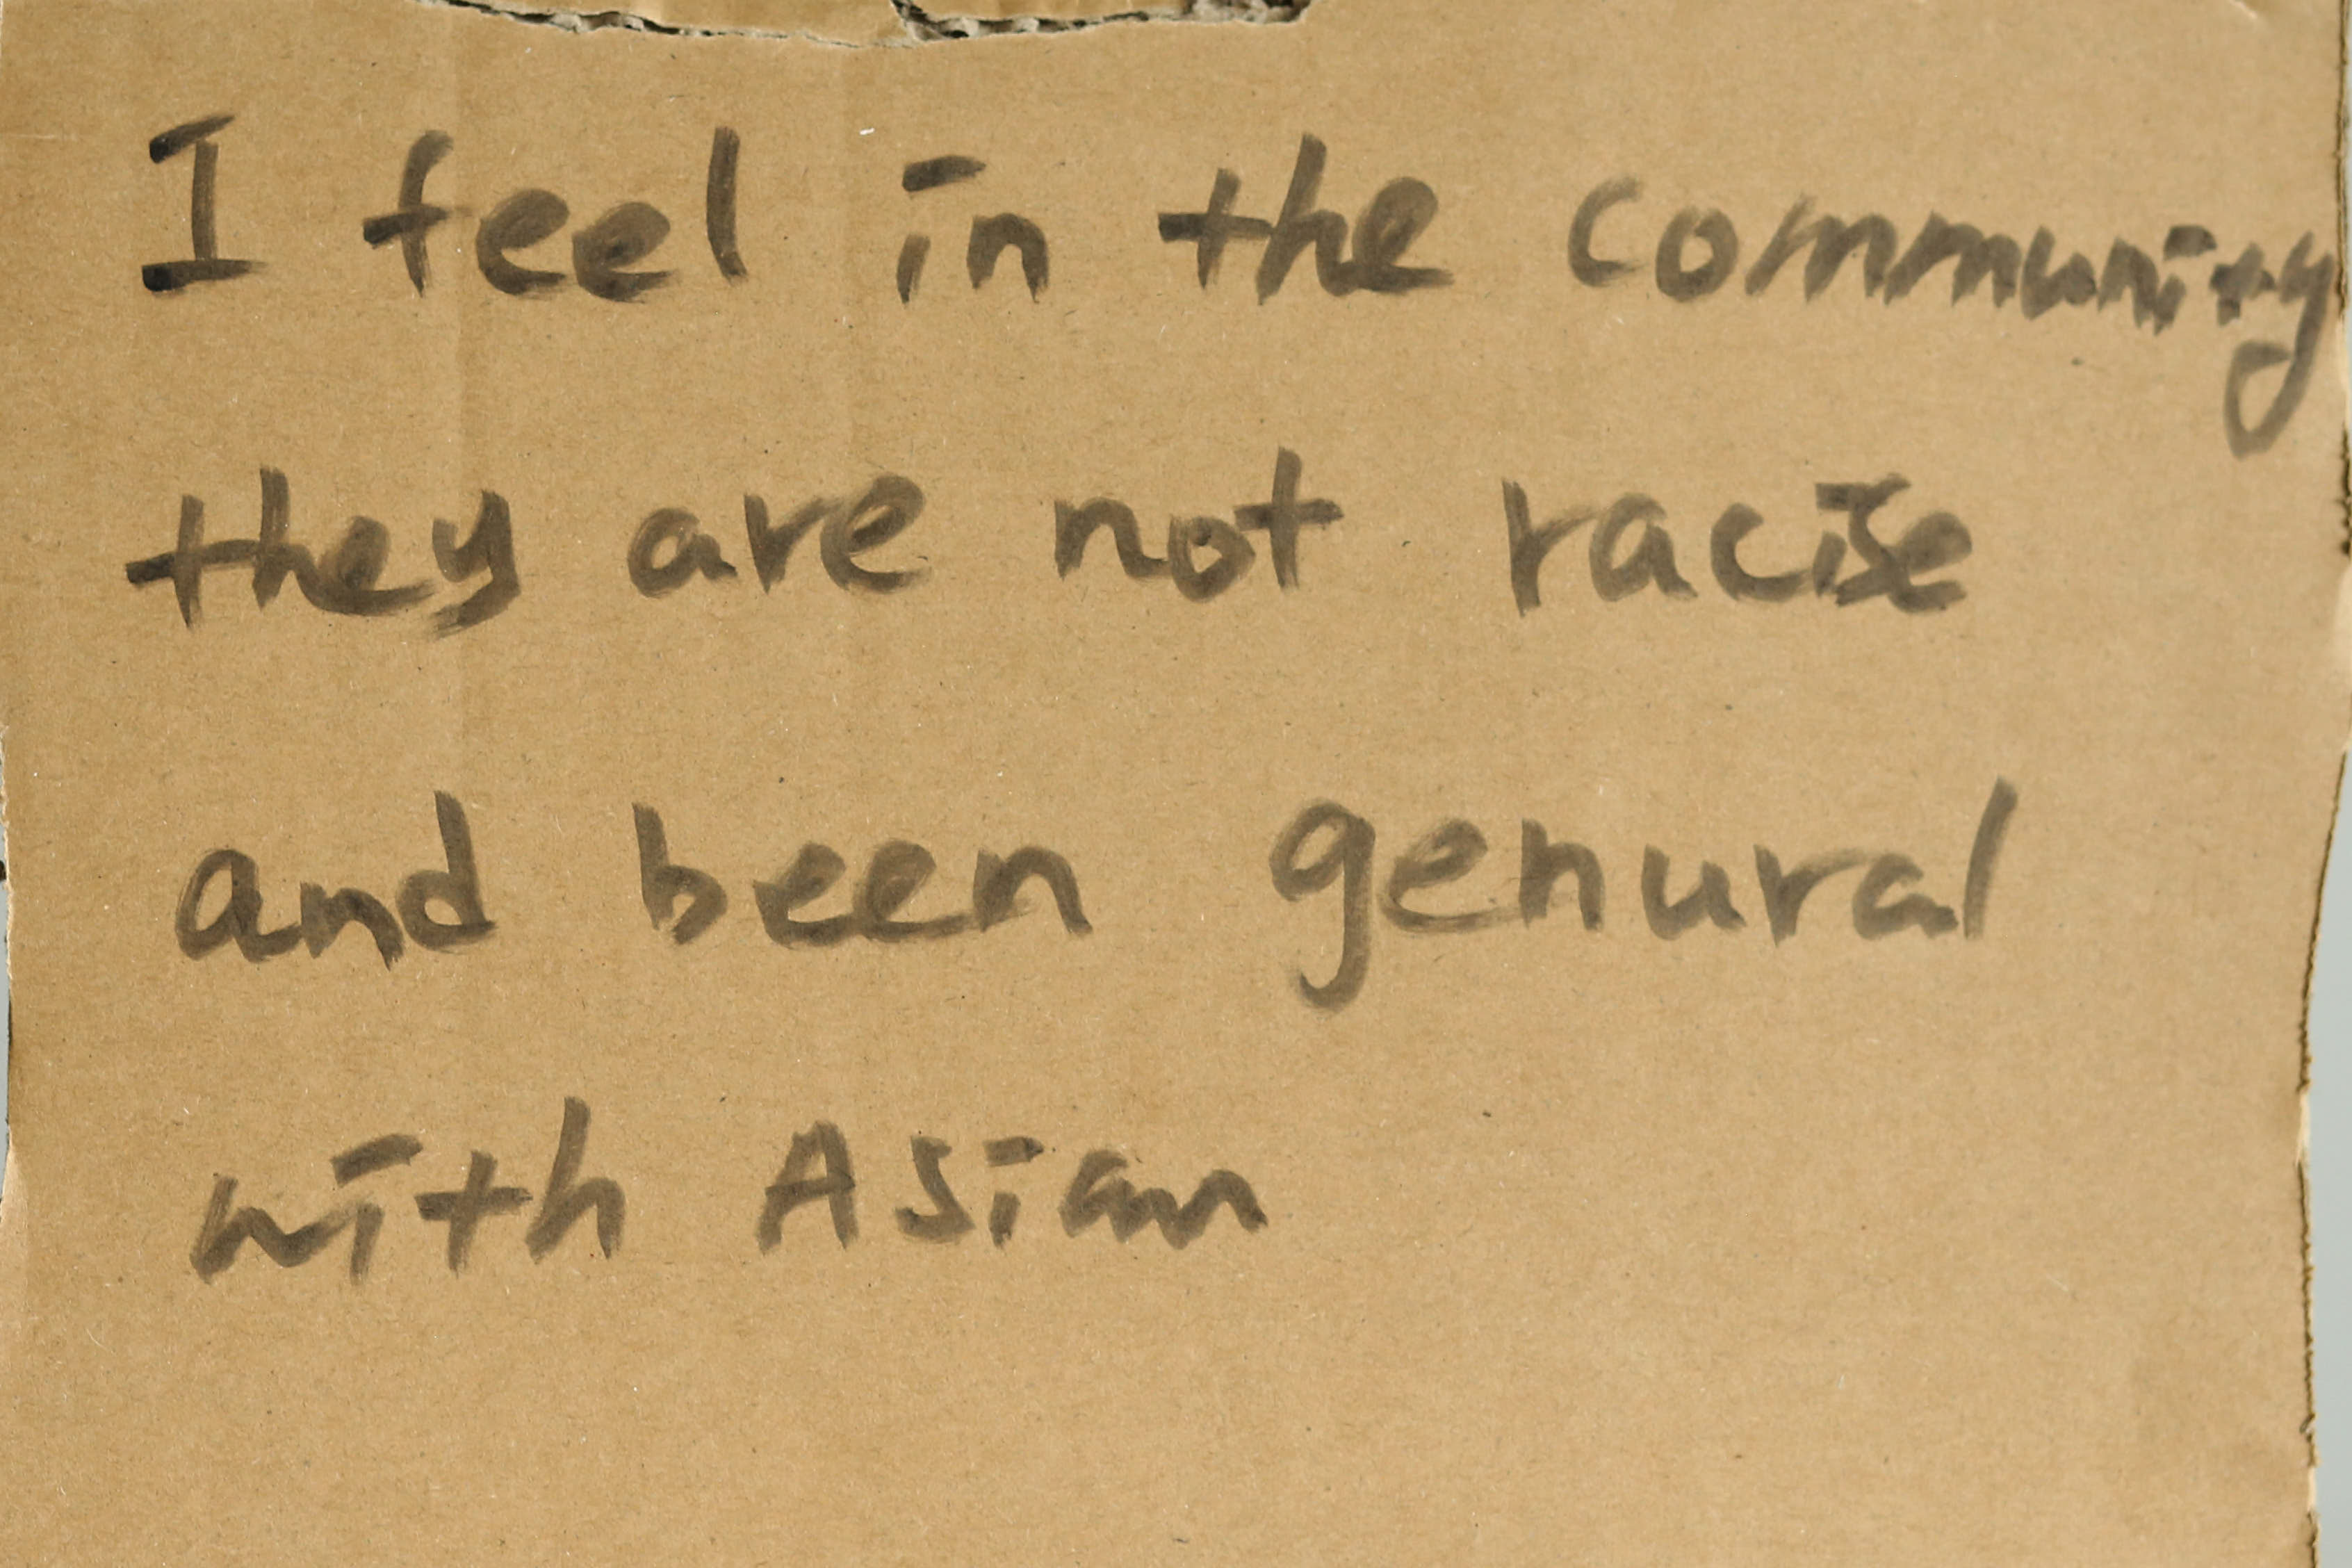 I feel in the community
they are not racise
and been genural
with Asian